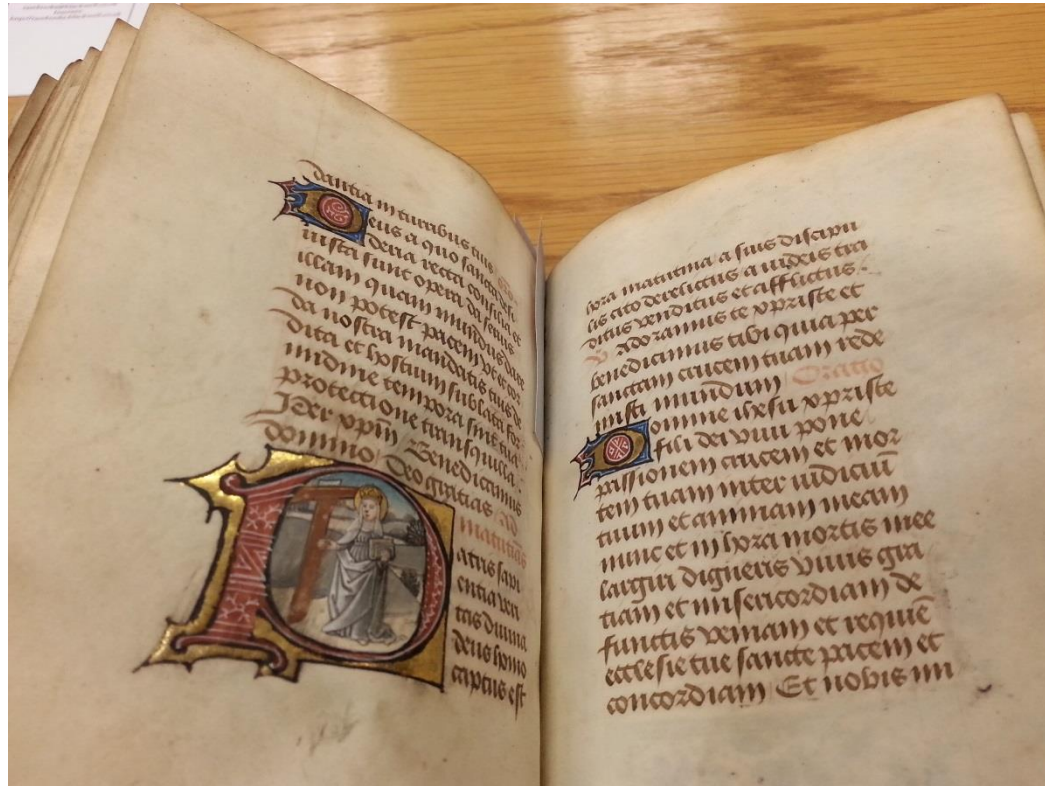 dantia in turribus tuis
Deus a quo sancta desi
deria recta consilia et
iusta sunt opera da seruis
illam quam mundus dare
non potest pacem vt et cor
da nostra mandatis tuis de
dita et hostium sublata for
midine tempora sint tua
protectione tranquilla
Per xpm̄ Benedicamus
domino Deo gratias Ad
matutias
Patris sapi
entia veri
tas diuina
deus homo
captus est
hora matutina a suis discipu
lis cito derelictus a iudeis tra
ditus venditus et afflictus.
V Adoramus te xpriste et
benedicimus tibi quia per
sanctam crucem tuam rede
misti mundum Oratio
Domine ihesu xpriste
fili dei viui pone
passionem crucem et mor
tem tuam inter iudiciū
tuum et animam meam
nunc et in hora mortis mee
largiri digneris viuis gra
tiam et misericordiam de
functis veniam et requiē
ecclesie tue sancte pacem et
concordiam Et nobis mi